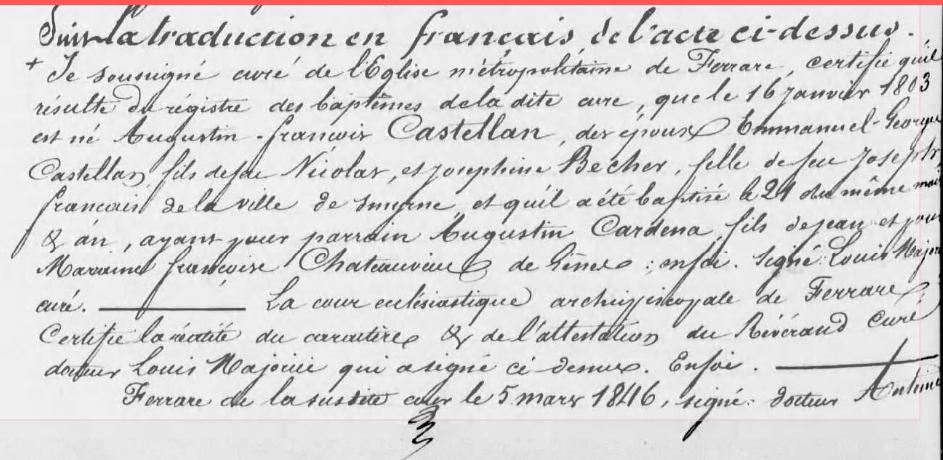 Suit la traduction en français de l'acte ci-dessus.
+ Je soussigné curé de l'Eglise métropolitaine de Ferrare, certifie qu'il
résulte du régistre des baptêmes de la dite cure, que le 16 janvier 1803
est né Augustin-françois Castellan, des époux Emmanuel-George
Castellan, fils de feu Nicolas, et Joséphine Becher, fille de feu Joseph
français de la ville de Smyrne, et qu'il a été baptisé le 21 du même mois
& an, ayant pour parrain Augustin Cardena, fils de jean et pour
Marraine françoise Chateauvieux de Gênes; en foi. Signé: Louis
curé. La cour eclésiastique archiépiscopale de Ferrare,
Certifie la réalité du caractère & de l'attestation du Révérand Curé
docteur Louis qui a signé ci-dessus. En foi.
Ferrare de la susdite cour le 5 mars 1846, signé: docteur